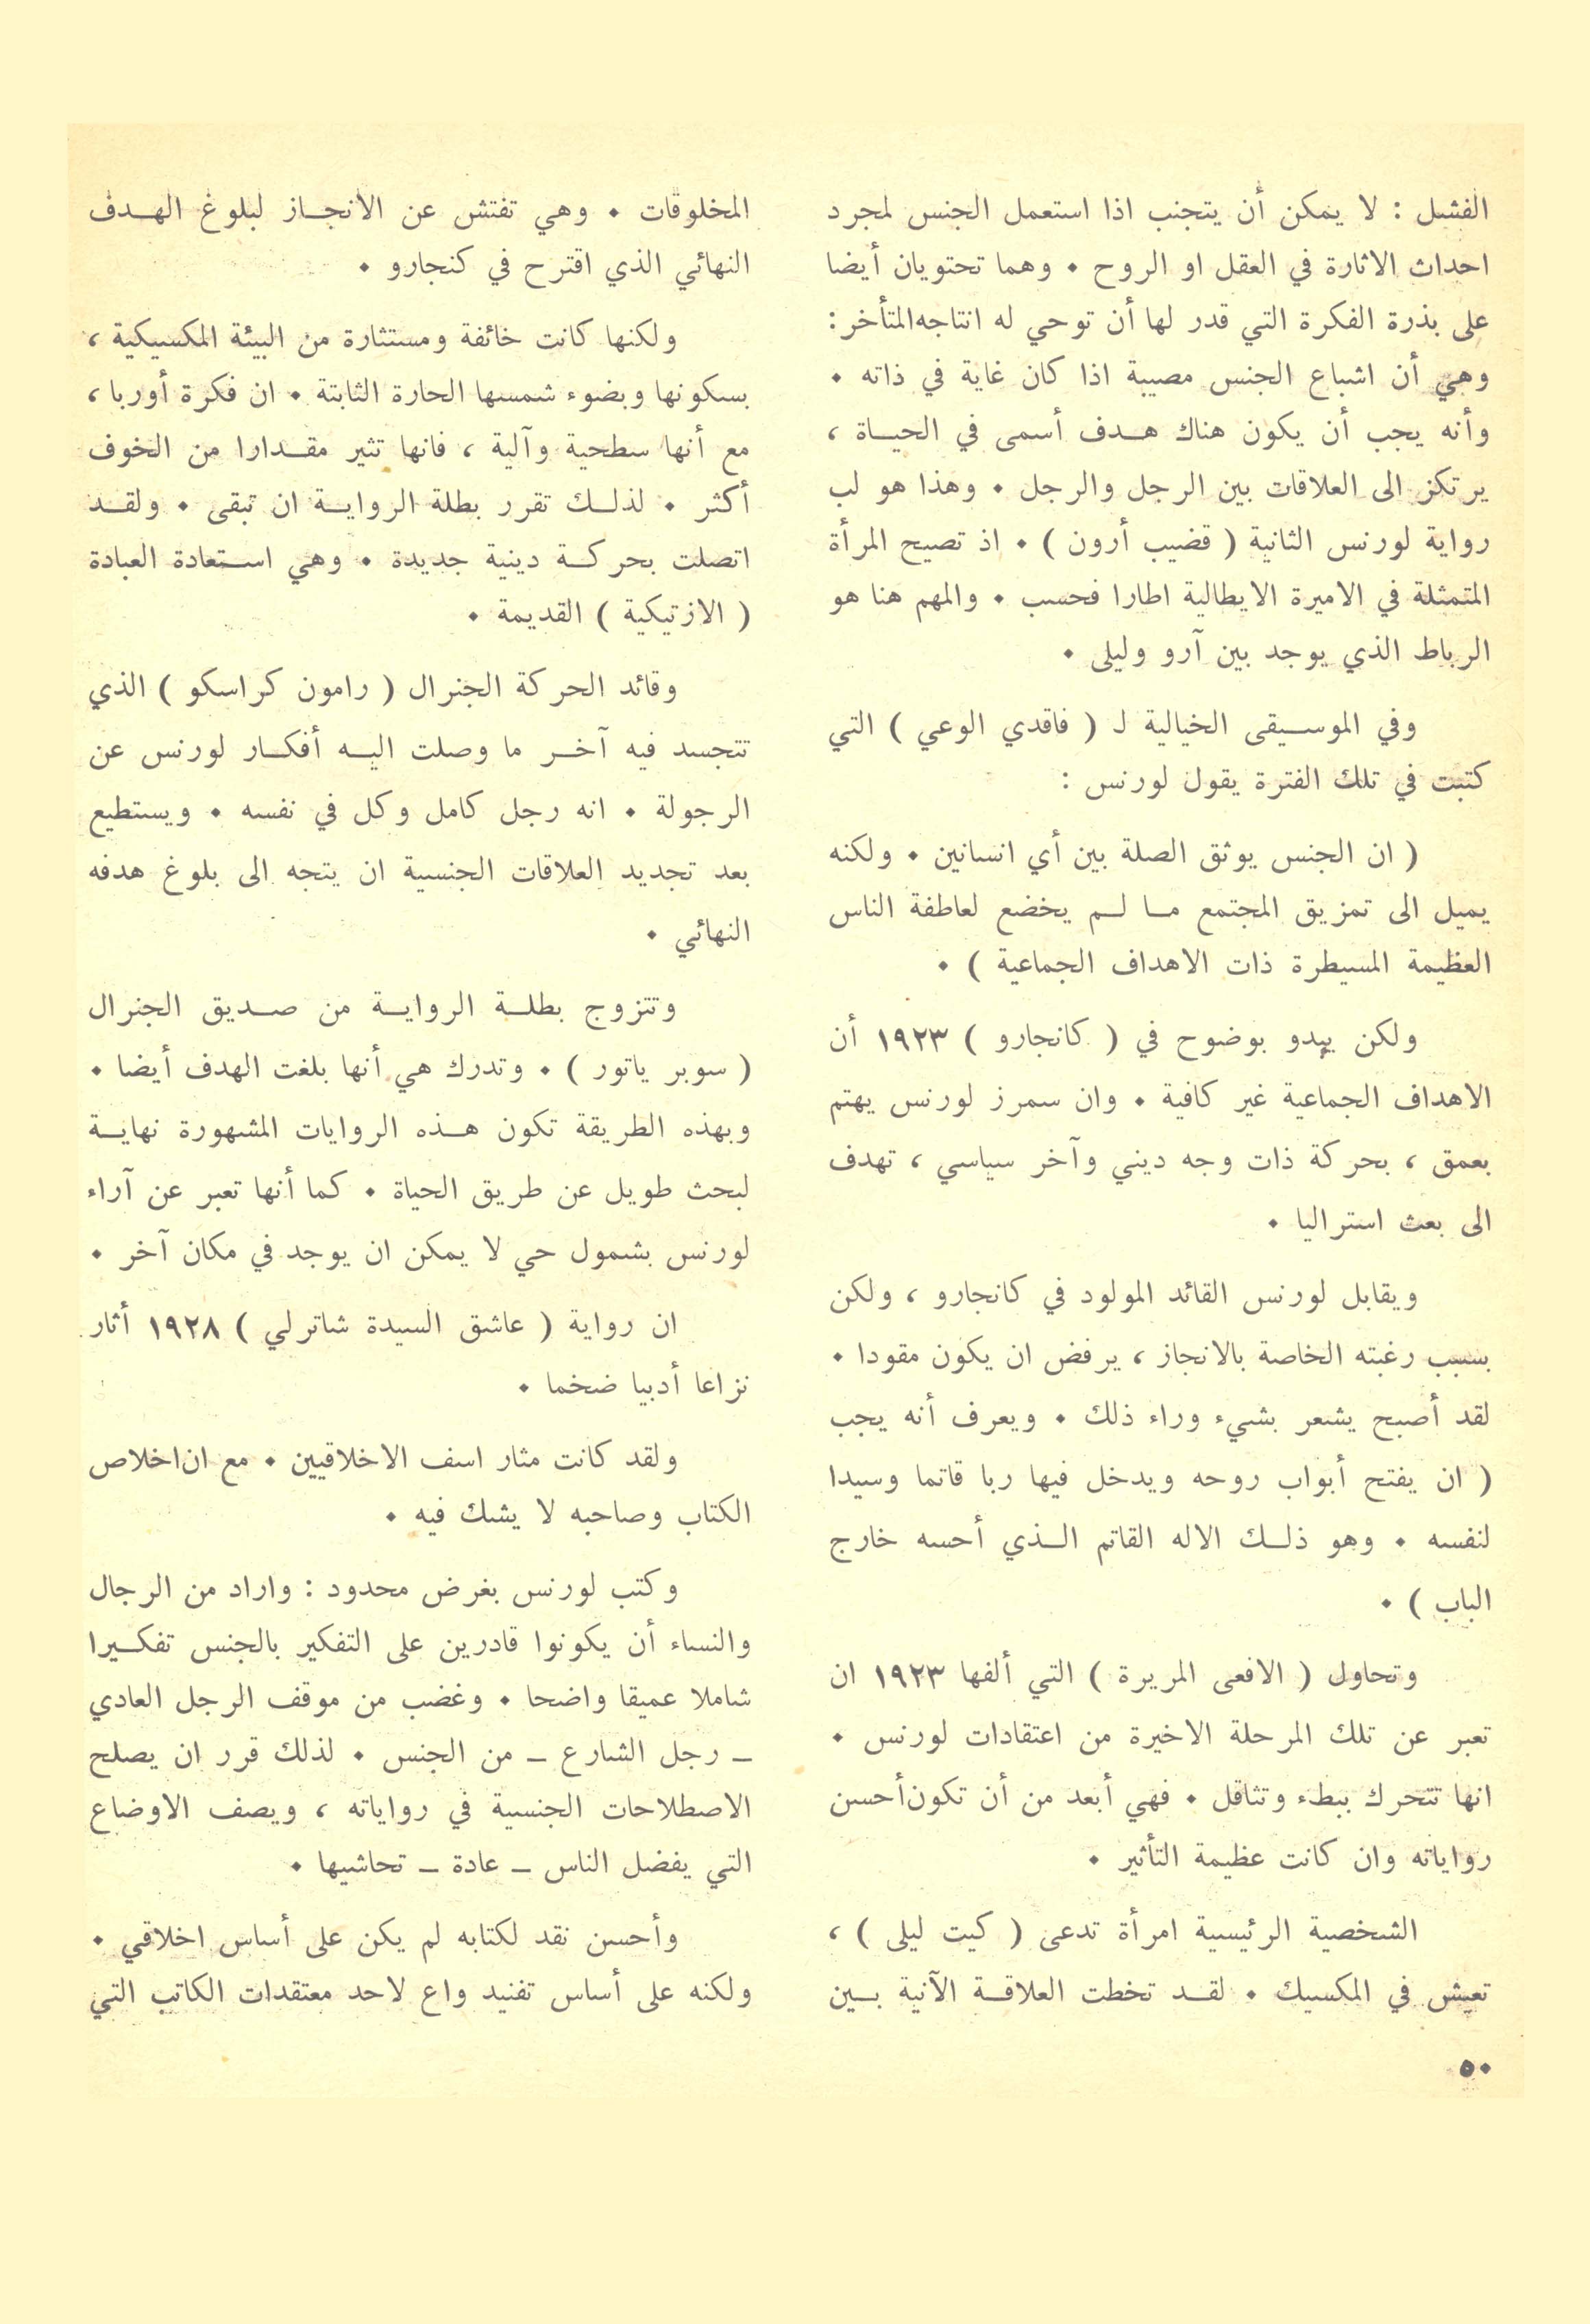 الفشل : لا يمكن أن يتجنب اذا استعمل الجنس لمجرد
احداث الاثارة في العقل او الروح ٠ وهما تحتويان أيضا
على بذرة الفكرة التي قدر لها أن توحي له انتاجه المتأخر :
وهي أن اشباع الجنس مصيبة اذا كان غاية في ذاته ٠
وأنه يجب أن يكون هناك هدف أسمى في الحياة ،
يرتكز الى العلاقات بين الرجل والرجل ٠ وهذا هو لب
رواية لورنس الثانية ( قضيب أرون ) ٠ اذ تصبح المرأة
المتمثلة في الاميرة الايطالية اطارا فحسب ٠ والمهم هنا هو
الرباط الذي يوجد بين آرو وليلى ٠
وفي الموسيقى الخيالية لـ ( فاقدي الوعي ) التي
كتبت في تلك الفترة يقول لورنس :
( ان الجنس يوثق الصلة بين أي انسانين ٠ ولكنه
يميل الى تمزيق المجتمع ما لم يخضع لعاطفة الناس
العظيمة المسيطرة ذات الاهداف الجماعية ) ٠
ولكن يبدو بوضوح في ( كانجارو ) ١٩٢٣ أن
الاهداف الجماعية غير كافية ٠ وان سمرز لورنس يهتم
بعمق ، بحركة ذات وجه ديني وآخر سياسي ، تهدف
الى بعث استراليا ٠
ويقابل لورنس القائد المولود في كانجارو ، ولكن
بسبب رغبته الخاصة بالانجاز ، يرفض ان يكون مقودا ٠
لقد أصبح يشعر بشيء وراء ذلك ٠ ويعرف أنه يجب
( ان يفتح أبواب روحه ويدخل فيها ربا قاتما وسيدا
لنفسه ٠ وهو ذلك الاله القاتم الذي أحسه خارج
الباب ) ٠
وتحاول ( الافعى المريرة ) التي ألفها ١٩٢٣ ان
تعبر عن تلك المرحلة الاخيرة من اعتقادات لورنس ٠
انها تتحرك ببطء وتثاقل ٠ فهي أبعد من أن تكون أحسن
رواياته وان كانت عظيمة التأثير ٠
الشخصية الرئيسية امرأة تدعى ( كيت ليلى ) ،
تعيش في المكسيك ٠ لقد تخطت العلاقة الآنية بين
المخلوقات ٠ وهي تفتش عن الانجاز لبلوغ الهدف
النهائي الذي اقترح في كنجارو ٠
ولكنها كانت خائفة ومستثارة من البيئة المكسيكية ،
بسكونها وبضوء شمسها الحارة الثابتة ٠ ان فكرة أوربا ،
مع أنها سطحية وآلية ، فانها تثير مقدارا من الخوف
أكثر ٠ لذلك تقرر بطلة الرواية ان تبقى ٠ ولقد
اتصلت بحركة دينية جديدة ٠ وهي استعادة العبادة
( الازتيكية ) القديمة ٠
وقائد الحركة الجنرال ( رامون كراسكو ) الذي
تتجسد فيه آخر ما وصلت اليه أفكار لورنس عن
الرجولة ٠ انه رجل كامل وكل في نفسه ٠ ويستطيع
بعد تجديد العلاقات الجنسية ان يتجه الى بلوغ هدفه
النهائي ٠
وتتزوج بطلة الرواية من صديق الجنرال
( سوبر ياتور ) ٠ وتدرك هي أنها بلغت الهدف أيضا ٠
وبهذه الطريقة تكون هذه الروايات المشهورة نهاية
لبحث طويل عن طريق الحياة ٠ كما أنها تعبر عن آراء
لورنس بشمول حي لا يمكن ان يوجد في مكان آخر ٠
ان رواية ( عاشق السيدة شاترلي ) ١٩٢٨ أثار
نزاعا أدبيا ضخما ٠
ولقد كانت مثار اسف الاخلاقيين ٠ مع ان اخلاص
الكتاب وصاحبه لا يشك فيه ٠
وكتب لورنس بغرض محدود : واراد من الرجال
والنساء أن يكونوا قادرين على التفكير بالجنس تفكيرا
شاملا عميقا واضحا ٠ وغضب من موقف الرجل العادي
ــ رجل الشارع ــ من الجنس ٠ لذلك قرر ان يصلح
الاصطلاحات الجنسية في رواياته ، ويصف الاوضاع
التي يفضل الناس ــ عادة ــ تحاشيها ٠
وأحسن نقد لكتابه لم يكن على أساس اخلاقي ٠
ولكنه على أساس تفنيد واع لاحد معتقدات الكاتب التي
٥٠